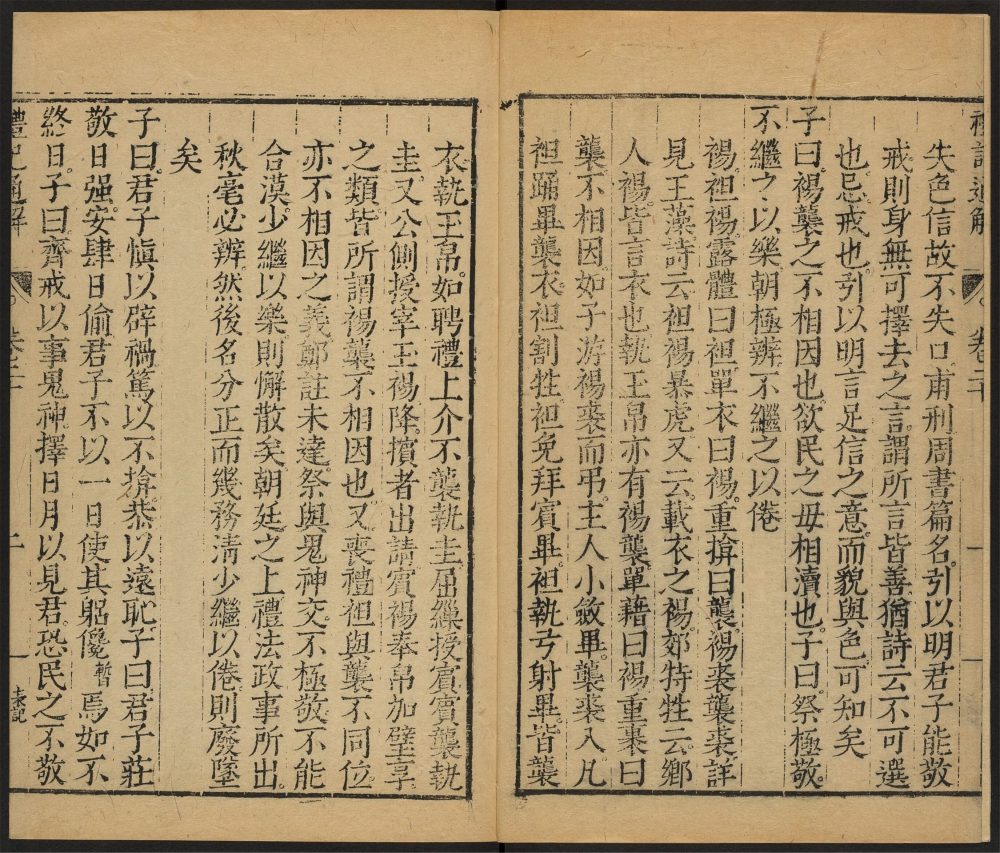 禮記通解 卷二十 一
失色信故不失口甫刑周書篇名引以明君子能敬
戒則身無可擇去之言謂所言皆善猶詩云不可選
也忌戒也引以明言足信之意而貌與色可知矣
子曰裼襲之不相因也欲民之毋相瀆也子曰祭極敬
不繼之以樂朝極辨不繼之以倦
裼袒裼露體曰袒單衣曰裼重揜曰襲裼裘襲裘詳
見玉藻詩云袒裼暴虎又云載衣之裼郊特牲云鄉
人裼皆言衣也執玉帛亦有裼襲單藉曰裼重裹曰
襲不相因如子游裼裘而弔主人小斂畢襲裘入凡
袒踊畢襲衣袒割牲袒免拜賓畢袒執弓射畢皆襲
衣執玉帛如聘禮上介不襲執圭屈繅授賓賓襲執
圭又公側授宰玉裼降擯者出請賓裼奉帛加璧享
之類皆所謂裼襲不相因也又喪禮袒與襲不同位
亦不相因之義鄭註未達祭與鬼神交不極敬不能
合漠少繼以樂則懈散矣朝廷之上禮法政事所出
秋毫必辨然後名分正而幾務清少繼以倦則廢墜
矣
子曰君子慎以辟禍篤以不揜恭以遠恥子曰君子莊
敬日强安肆日偷君子不以一日使其躬儳暫焉如不
終日子曰齊戒以事鬼神擇日月以見君恐民之不敬
禮記通解 卷二十 一 表記